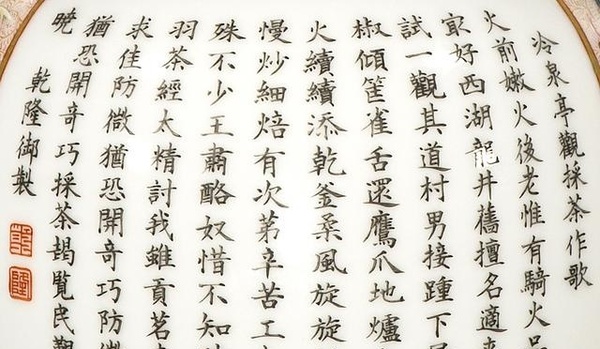 冷泉亭觀採茶作歌
火前嫩火後老惟有騎火品
㝡好西湖龍井舊擅名適來
試一觀其道村男接踵下層
椒傾筐雀舌還鷹爪地爐
火續續添乾釜柔風旋旋
慢炒細焙有次第辛苦工
殊不少王肅酪奴惜不知
羽茶經太精討我雖貢茗
求佳防微猶恐開奇巧防微
猶恐開奇巧採茶朅覽民艱
曉
乾隆御製
乾
隆